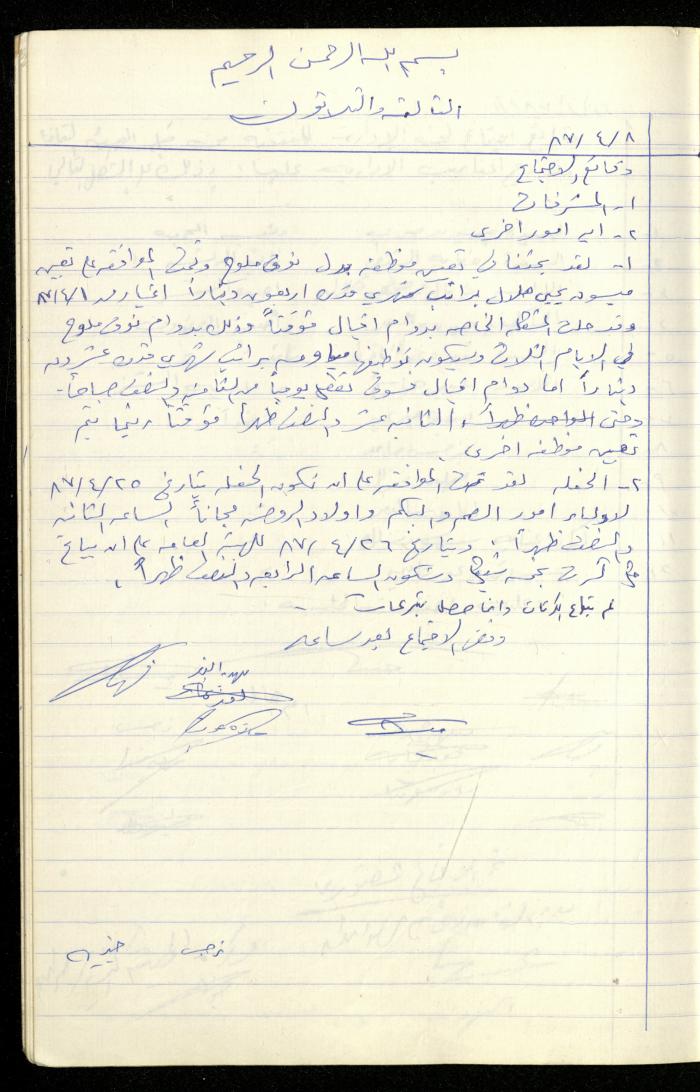 بسم الله الرحمن الرحيم
الثالثة والثلاثون
٨٧/٤/٨
وقائع الاجتماع
١- المشرفات
٢- اية امور اخرى
١- لقد بحثنا في تعيين موظفة بدل نوفى ملوح وتمت الموافقة على تعيين
ميسون يحيى هلال براتب شهري قدره اربعون ديناراً اعتباراً من ٨٧/٤/١
وقد حلت المشكلة الخاصة بدوام اميال مؤقتاً وذلك بدوام نوفى ملوح
في الايام الثلاث وسيكون براتب شهري قدره عشرون
ديناراً اما دوام اميال فسوف يومياً من الثامنة والنصف صباحاً
وحتى الواحدة ظهراً الثانية عشر والنصف ظهراً مؤقتاً ريثما يتم
تعيين موظفة اخرى.
٢- الحفلة لقد تمت الموافقة على ان تكون الحفلة بتاريخ ٨٧/٤/٢٥
لاولياء امور الصم والبكم واولاد الروضة مجاناً الساعة الثانية
والنصف ظهراً. وبتاريخ ٨٧/٤/٢٦ للهيئة العامة على ان يباع
كرت بخمسة وستكون الساعة الرابعة والنصف ظهراً.
لم تباع الكرتات وانما حصل تبرعات
وفض الاجتماع بعد ساعة